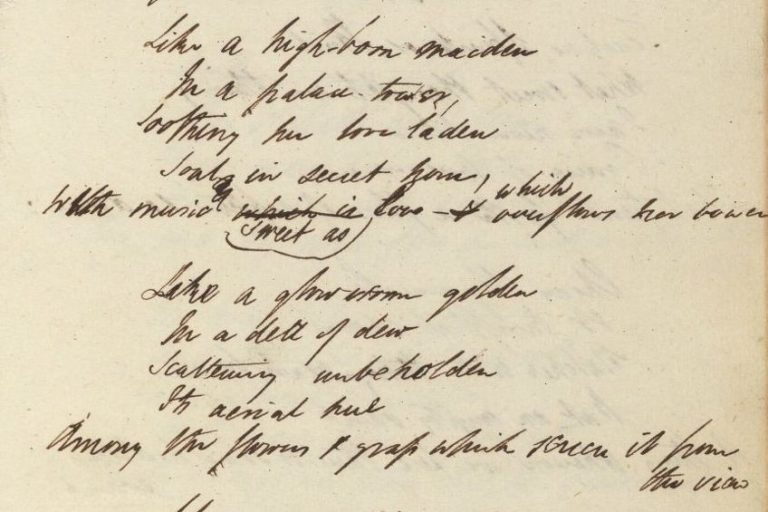 Like a high-born maiden
In a palace-tower,
Soothing her love laden
Soul in secret hour,
With music which is sweet as love - which overflows her bower
Like a glow worm golden
In a dell of dew
Scattering unbeholden
Its aerial hue
Among the flowers & grass which screen it from
the view